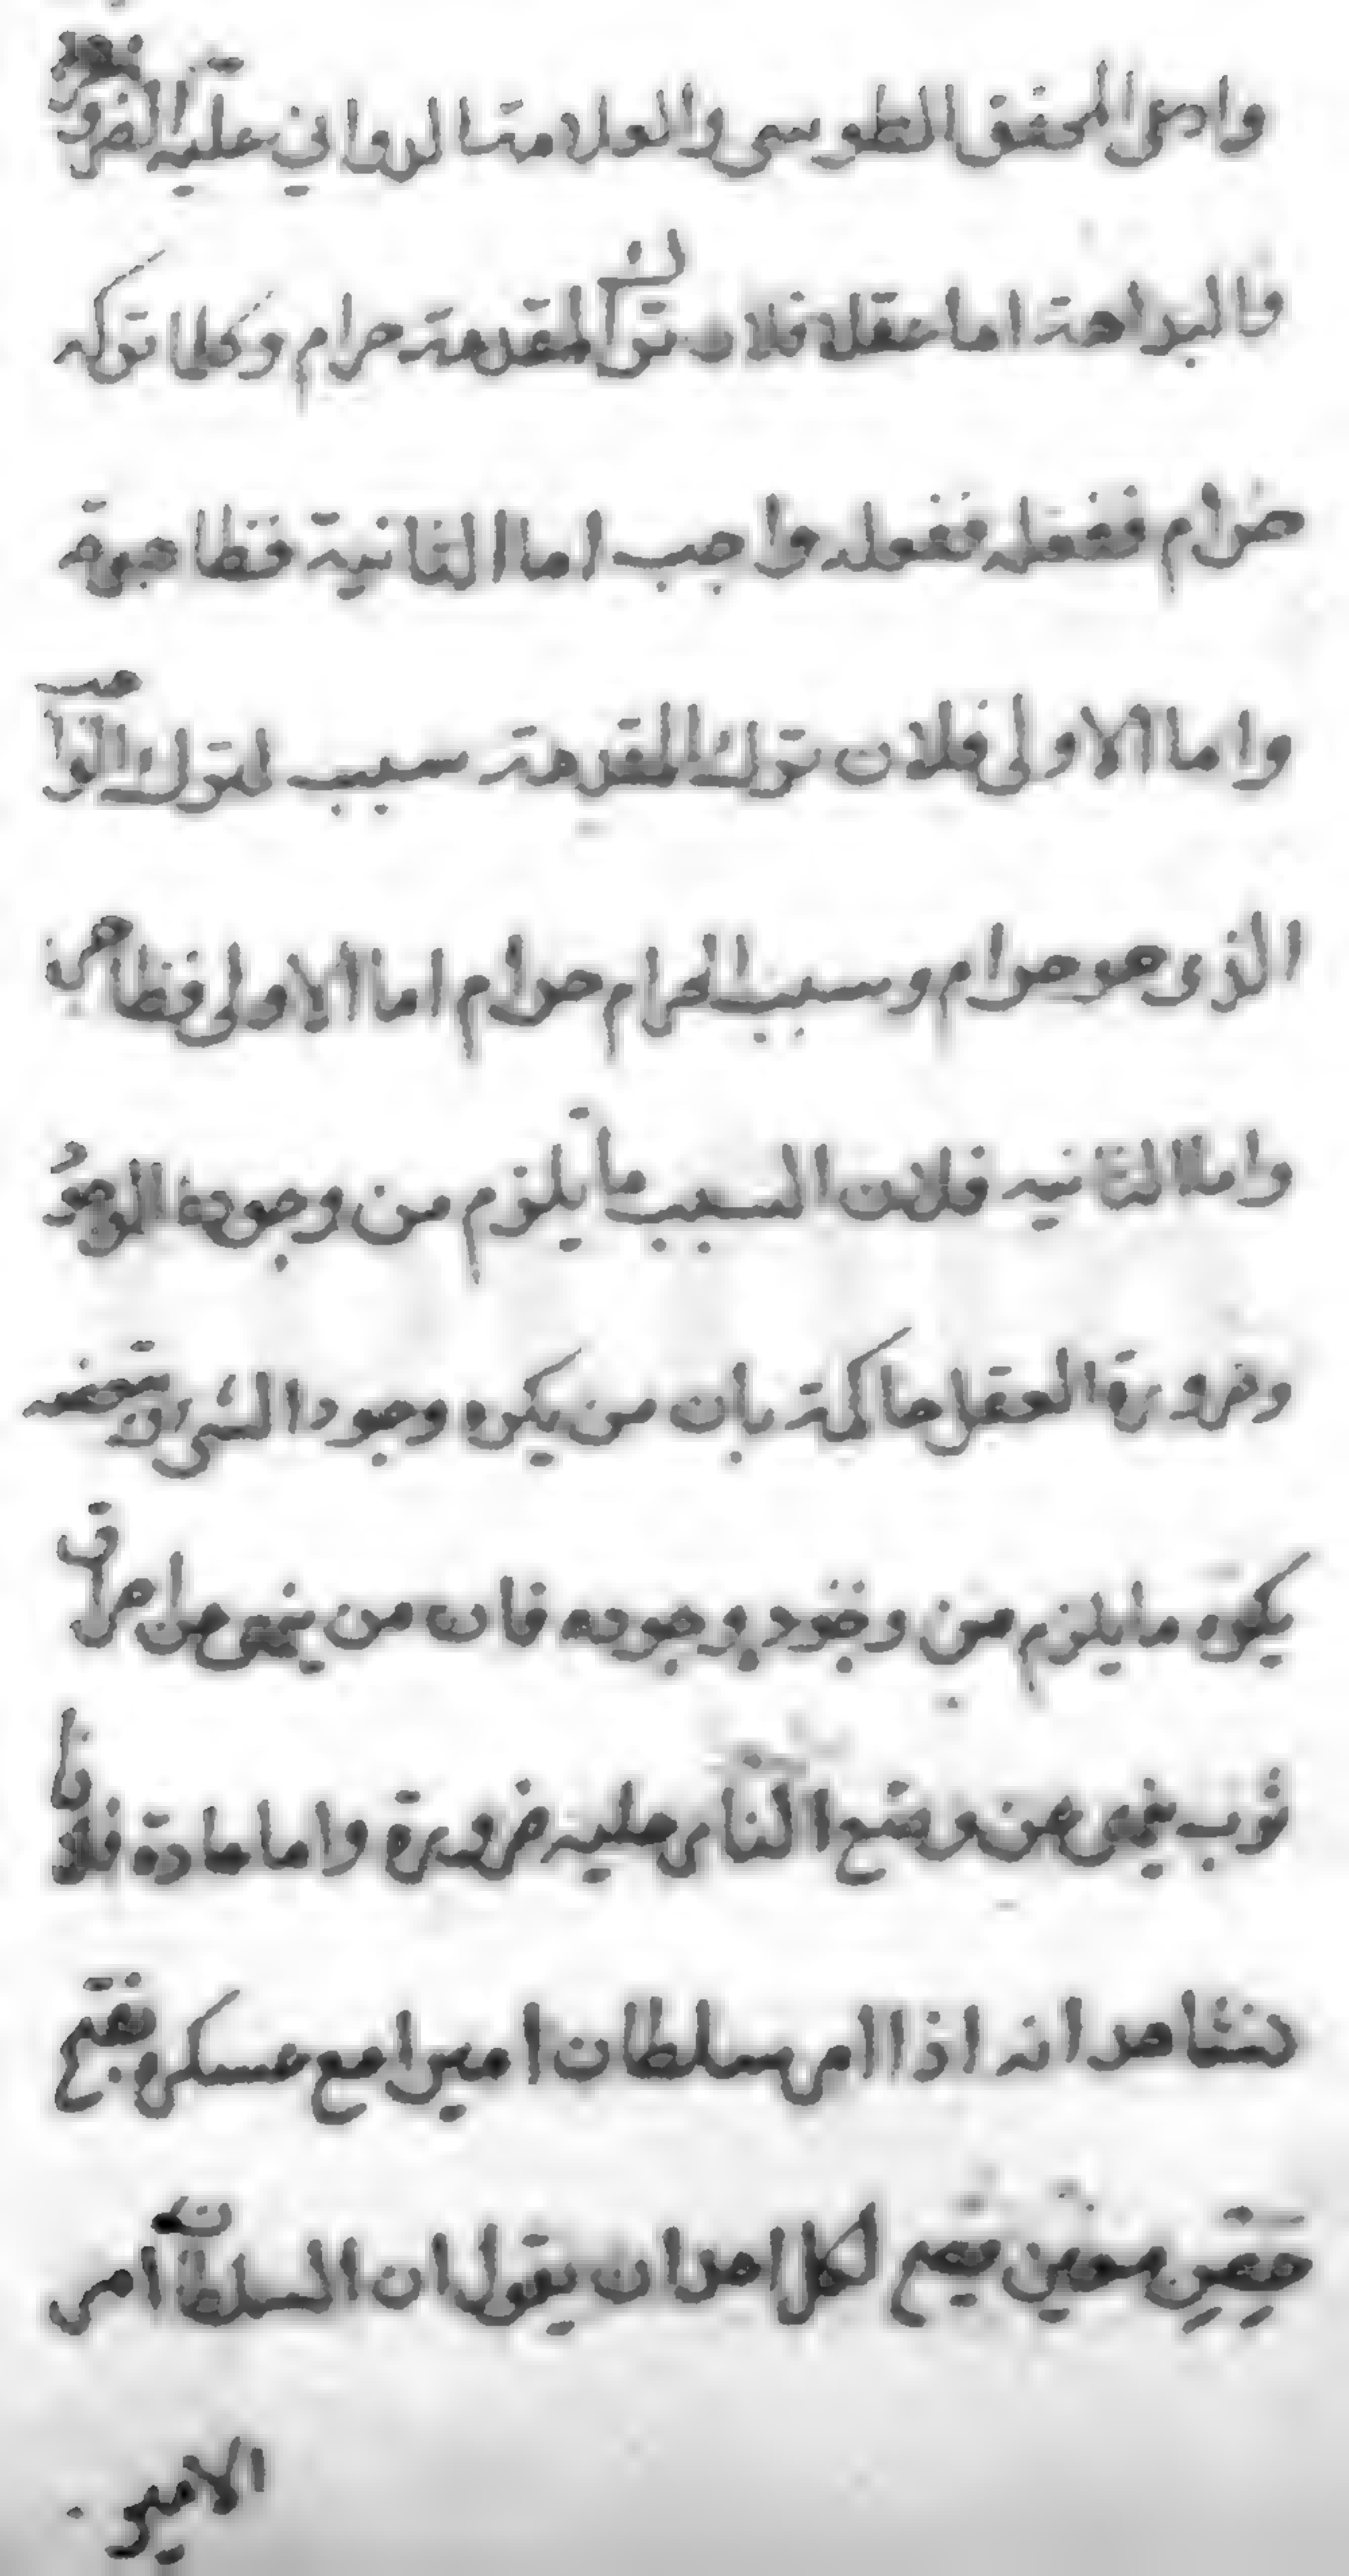 وادعى المحقق الطوسي والعلامة الدواني عليه الضرورة
فالبداهة اما عقلا فلان ترك المقدمة حرام وكلما تركه
حرام ففعله فواجب اما الثانية فظاهرة
واما الاولى فلان ترك المقدمة سبب لترك الواجب
الذي هو حرام وسبب الحرام حرام اما الاولى فظاهر
واما الثانيه فلان السبب ما يلزم من وجوده الوجود
وضرورة العقل حاكمة بان من يكره وجود الشئ
يكره ما يلزم من وجوده فان من ينهى عن احراق
ثوب ينهى عن وضع النار عليه ضرورة واما عادة فلانا
نشاهد انه اذا امر سلطان اميرا مع عسكره بفتح
حصن معين يصح لكل احد ان يقول ان السلطان امر
الامير